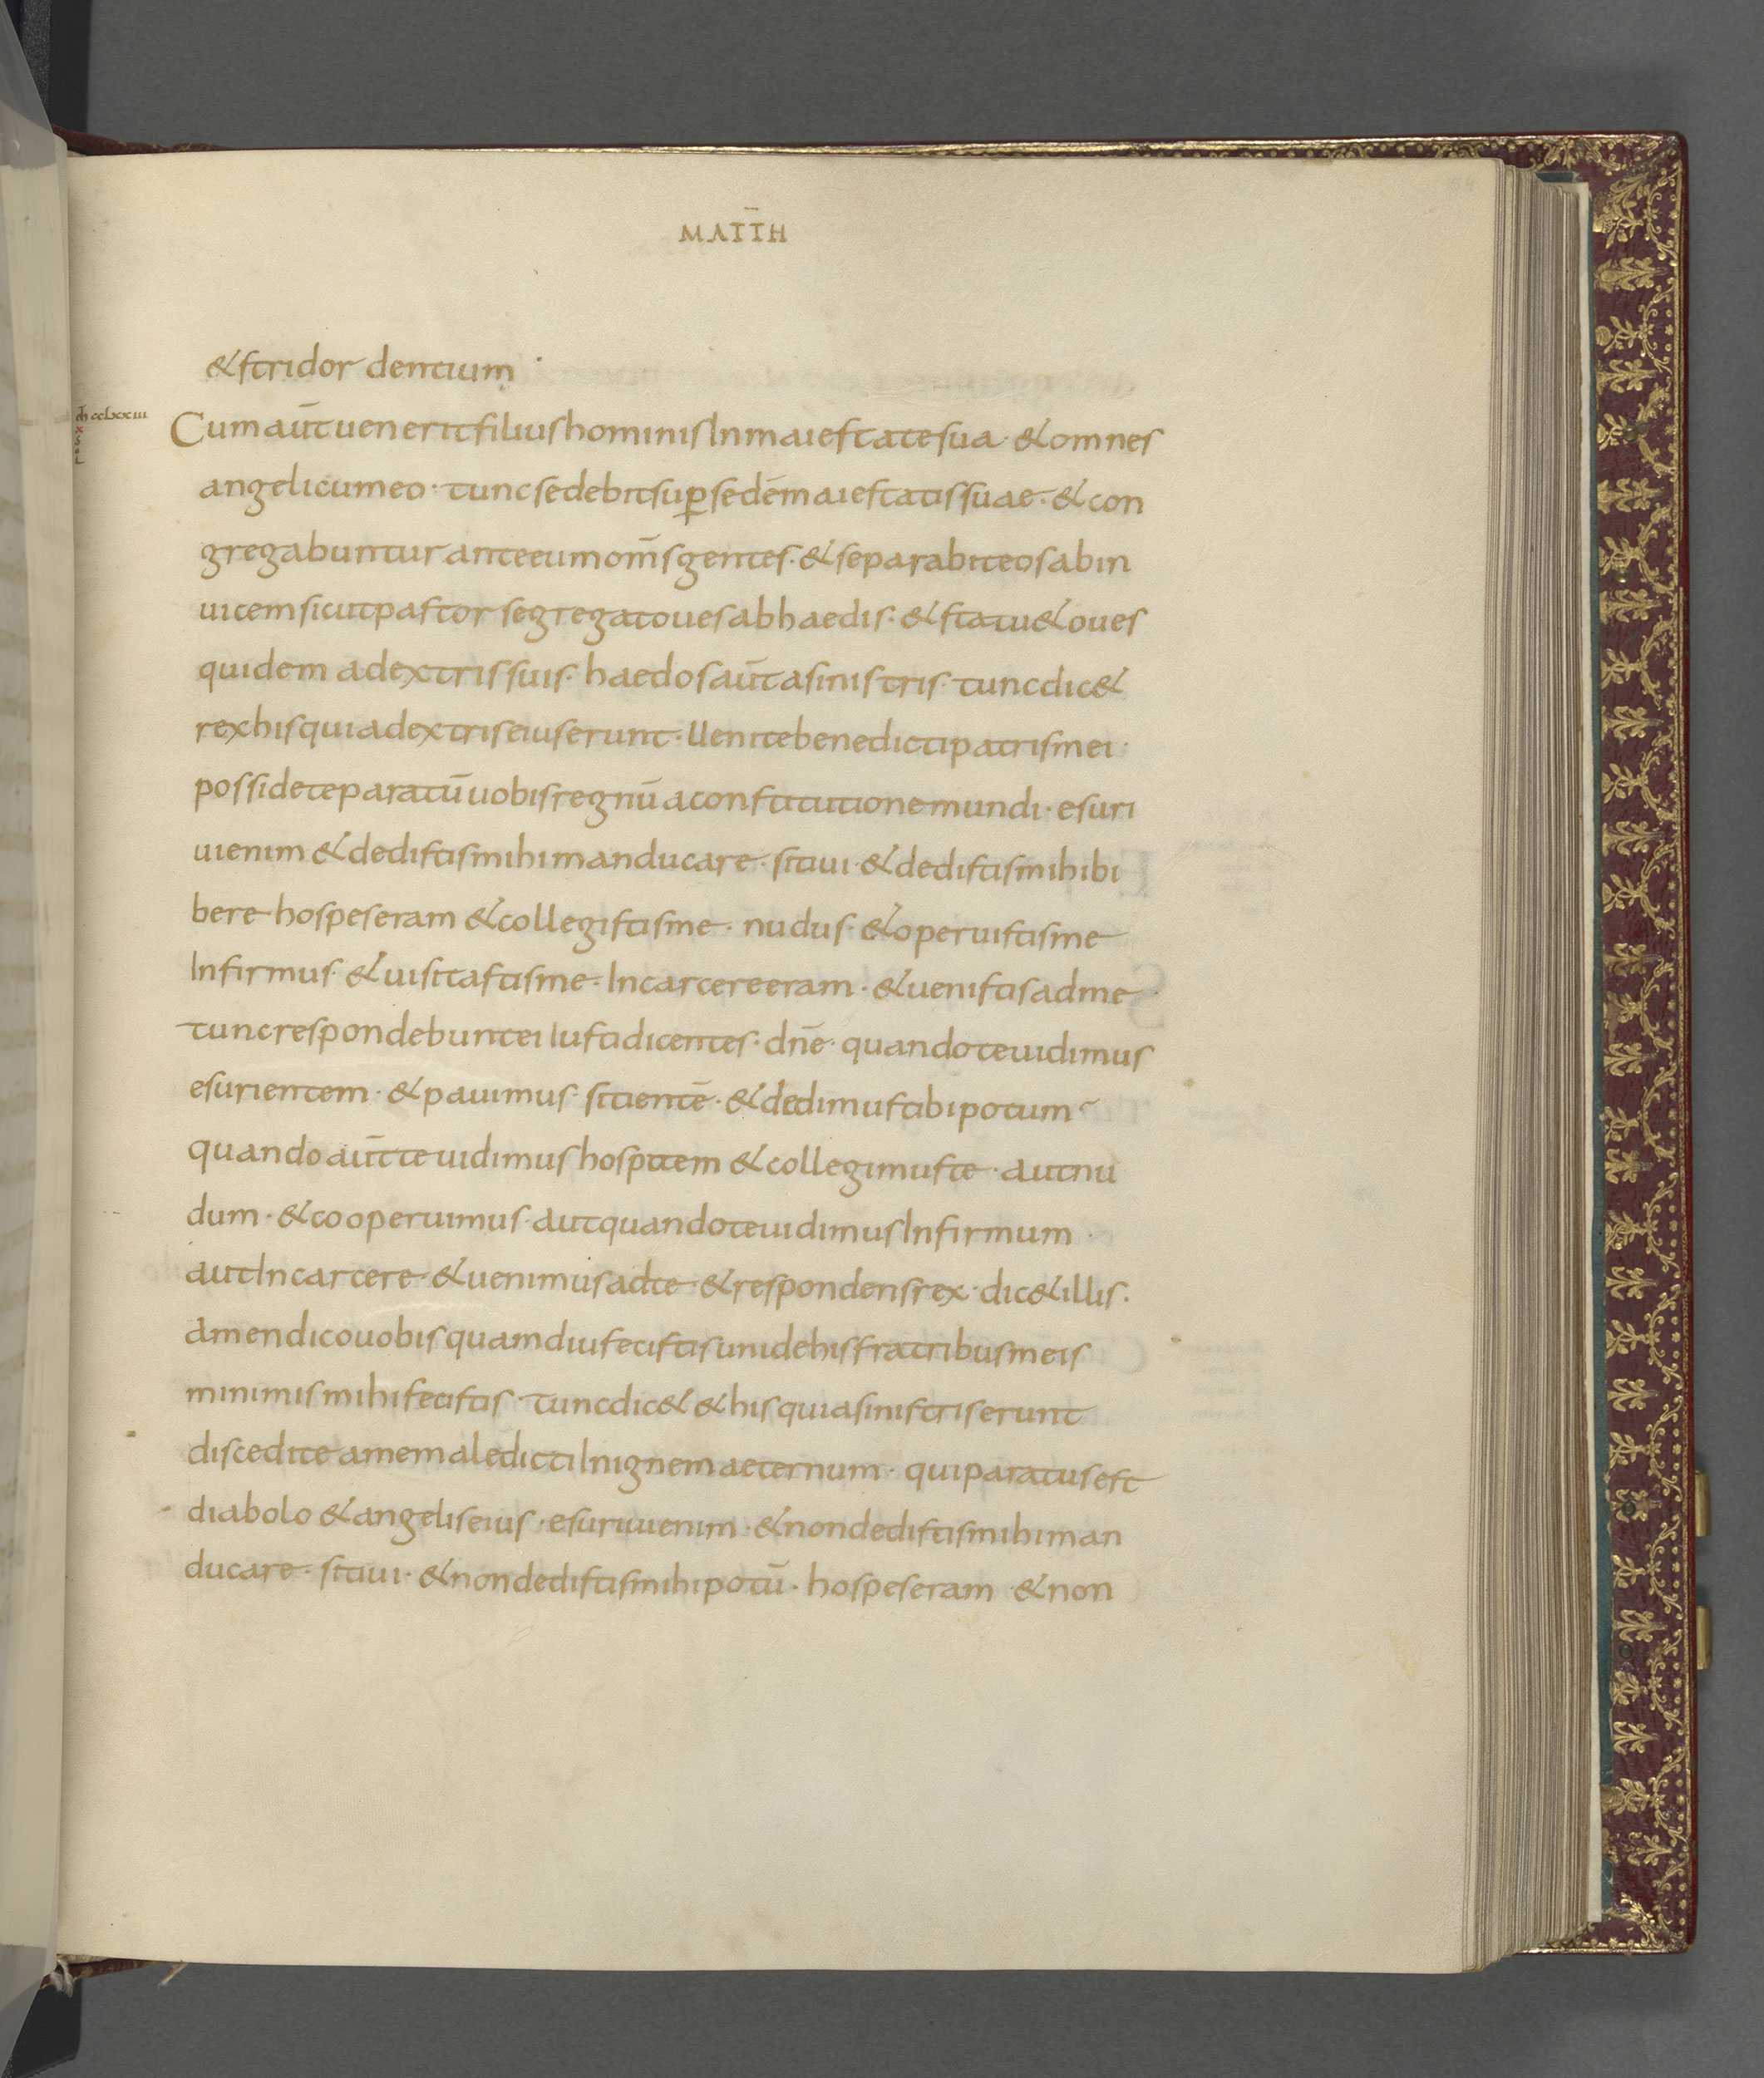 MATTH̅
& stridor dentium
cclxxiii
x
Cum aut̅ uenerit filius hominis In maiestate sua · & omnes
angeli cum eo · tunc sedebit sup̲ sedē maiestatis suae · & con
gregabuntur ante eum om̅s gentes · & separabit eos ab in
uicem sicut pastor segregat oues ab haedis · & statu& oues
quidem a dextris suis · haedos aut̅ a sinistris · tunc dic&
rex his qui a dextris eius erunt · Uenite benedicti patris mei ·
possidete paratū uobis regnū a constitutione mundi · esuri
ui enim & dedistis mihi manducare · sitiui · & dedistis mihi bi
bere · hospes eram & collegistis me · nudus · & operuistis me
Infirmus · & uisitastis me · In carcere eram · & uenistis ad me
tunc respondebunt ei Iusti dicentes · dn̅e · quando te uidimus
esurientem · & pauimus · sitientē · & dedimus tibi potum
quando aut̅ te uidimus hospitem & collegimus te · aut nu
dum · & cooperuimus · aut quando te uidimus Infirmum
aut In carcere · & uenimus ad te · & respondens rex · dic& illis ·
amen dico uobis quamdiu fecistis uni de his fratribus meis
minimis mihi fecistis · tunc dic& & his qui a sinistris erunt
discedite a me maledicti In ignem aeternum · qui paratus est
diabolo & angelis eius · esuriui enim · & non dedistis mihi man
ducare · sitiui · & non dedistis mihi potū · hospes eram · & non